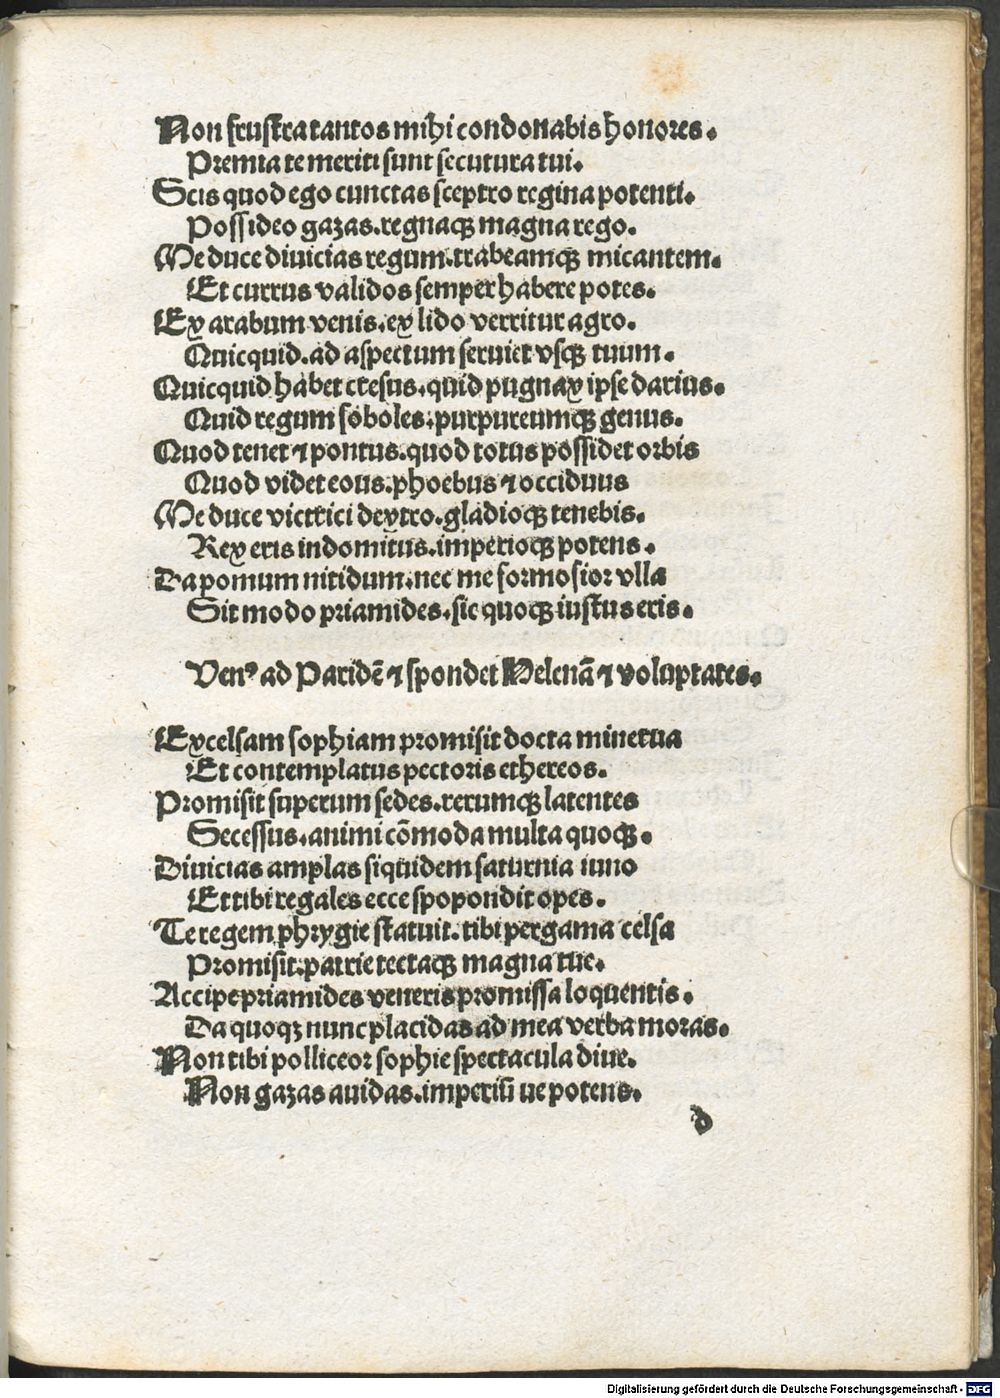 Non frustra tantos mihi condonabis honores.
Premia te meriti sunt secutura tui.
Scis quod ego cunctas sceptro regina potenti.
Possideo gazas.regnaqꝫ magna rego.
Me duce diuicias regum.trabeamqꝫ micantem.
Et currus validos semper habere potes.
Ex arabum venis.ex lido verritur agro.
Quicquid.ad aspectum seruiet vsqꝫ tuum.
Quicquid habet cresus.quid pugnax ipse darius.
Quid regum soboles.purpureumqꝫ genus.
Quod tenet ⁊ pontus.quod totus possidet orbis
Quod videt eous.phoebus ⁊ occiduus
Me duce victrici dextro.gladioqꝫ tenebis.
Rex eris indomitus.imperioqꝫ potens.
Da pomum nitidum.nec me formosior vlla
Sit modo priamides.sic quoqꝫ iustus eris.
Venꝰ ad Paridē ⁊ spondet Helenā ⁊ voluptates.
Excelsam sophiam promisit docta minerua
Et contemplatus pectoris ethereos.
Promisit superum sedes.rerumqꝫ latentes
Secessus.animi cōmoda multa quoqꝫ.
Diuicias amplas siquidem saturnia iuno
Et tibi regales ecce spopondit opes.
Te regem phrygie statuit.tibi pergama celsa
Promisit.patrie tectaqꝫ magna tue.
Accipe priamides veneris promissa loquentis.
Da quoqꝫ nunc placidas ad mea verba moras.
Non tibi polliceor sophie spectacula diue.
Non gazas auidas.imperiū ue potens.
d
Digitalisierung gefördert durch die Deutsche Forschungsgemeinschaft - DFG